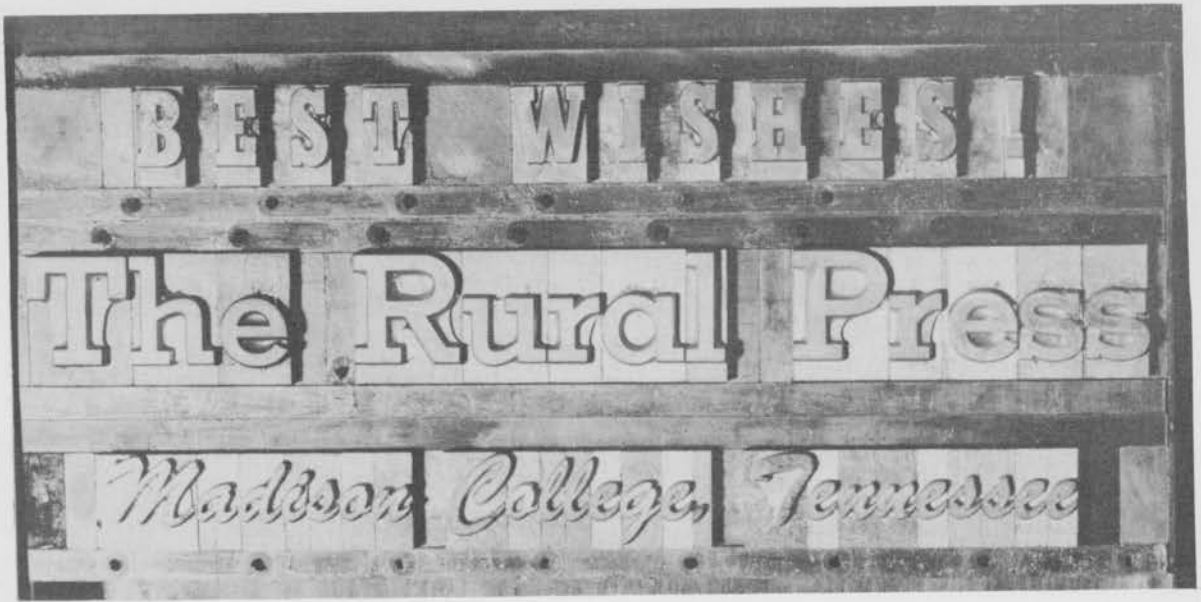 BEST WISHES!
The Rural Press
Madison College, Tennessee